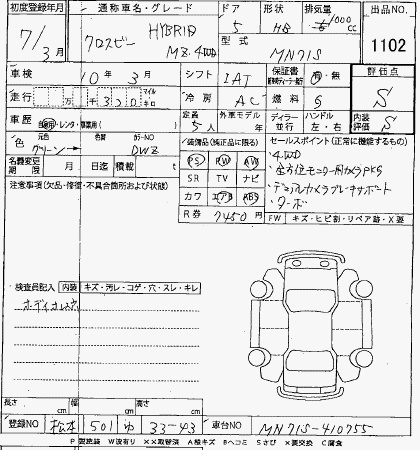 初度登録年月 通称車名・グレード ドア 形状 排気量 出品NO.
7/3月 クロスビー HYBRID MZ.4WD 5 HB 1000cc 1102
型式 MN71S
車検 10年3月 シフト IAT 保証書 有・無 評価点
走行 万 千 320 マイル キロ 冷房 AC 燃料 S
車歴 自家用・レンタ・事業用( ) 定員 5人 外車モデル 年 ディーラー 並行 ハンドル 左・右 内装評価 S
色 元色 グリーン カラーNO DWZ
装備品(純正品に限る) セールスポイント(正常に機能するもの)
名義変更期限 月 日迄 積載 t PS PW AW ・4WD
SR TV ナビ ・全方位モニター用カメラPKG
注意事項(欠品・修復・不具合箇所および状態) カワ エアB ABS ・デュアルカメラブレーキサポート
・ターボ
R券 7450円 FW キズ・ヒビ割・リペア跡・X要
検査員記入 内装 キズ・汚レ・コゲ・穴・スレ・キレ
長さ cm 幅 cm 高さ cm
登録NO 松本 501 ゆ 33-43 車台NO MN71S-410755
P 要塗装 W波有り XX取替済 A極キズ Bヘコミ Sさび X要交換 C腐食